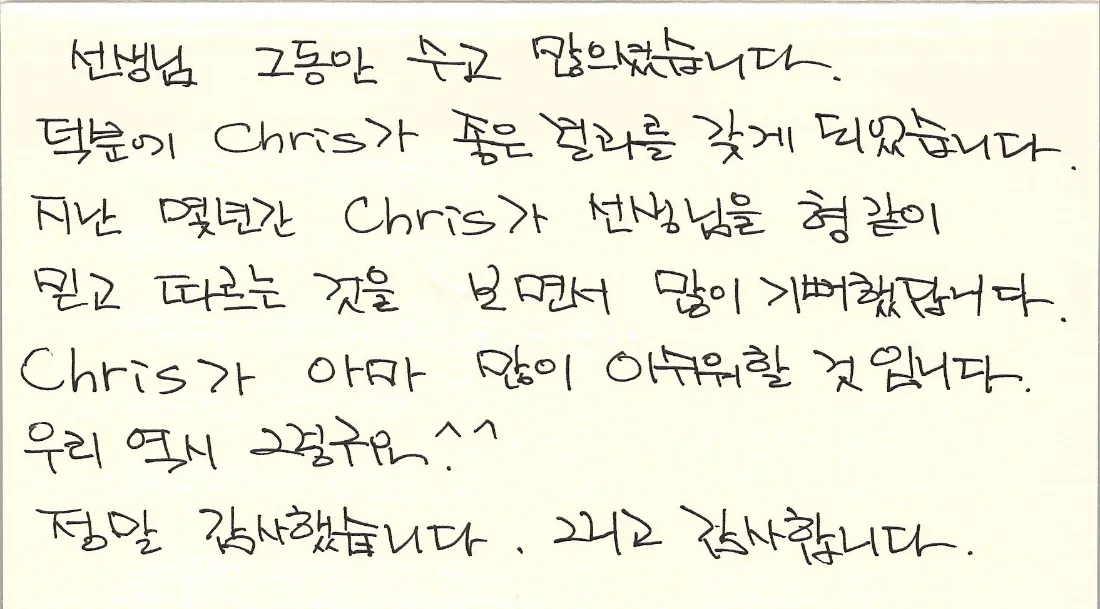 선생님 그동안 수고 많으셨습니다.
덕분에 Chris가 좋은 결과를 갖게 되었습니다.
지난 몇년간 Chris가 선생님을 형같이
믿고 따르는 것을 보면서 많이 기뻐했답니다.
Chris가 아마 많이 아쉬워할 것입니다.
우리 역시 그렇구요.^^
정말 감사했습니다. 그리고 감사합니다.